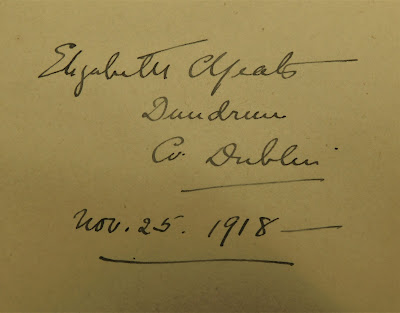 Elizabeth C Yeats
Dundrum
Co. Dublin
Nov. 25. 1918 —